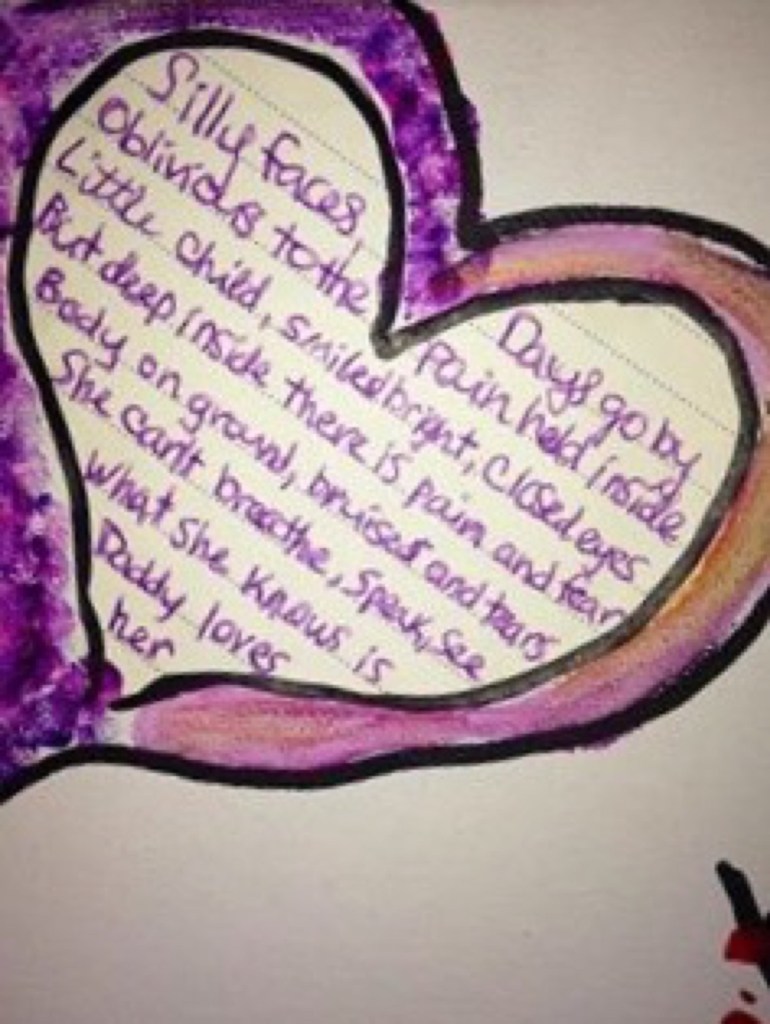 Silly faces, Days go by
Oblivious to the pain held inside
Little child, smiled bright, closed eyes
But deep inside there is pain and fear
Body on ground, bruises and tears
She can't breathe, speak, see
What she knows is
Daddy loves
her